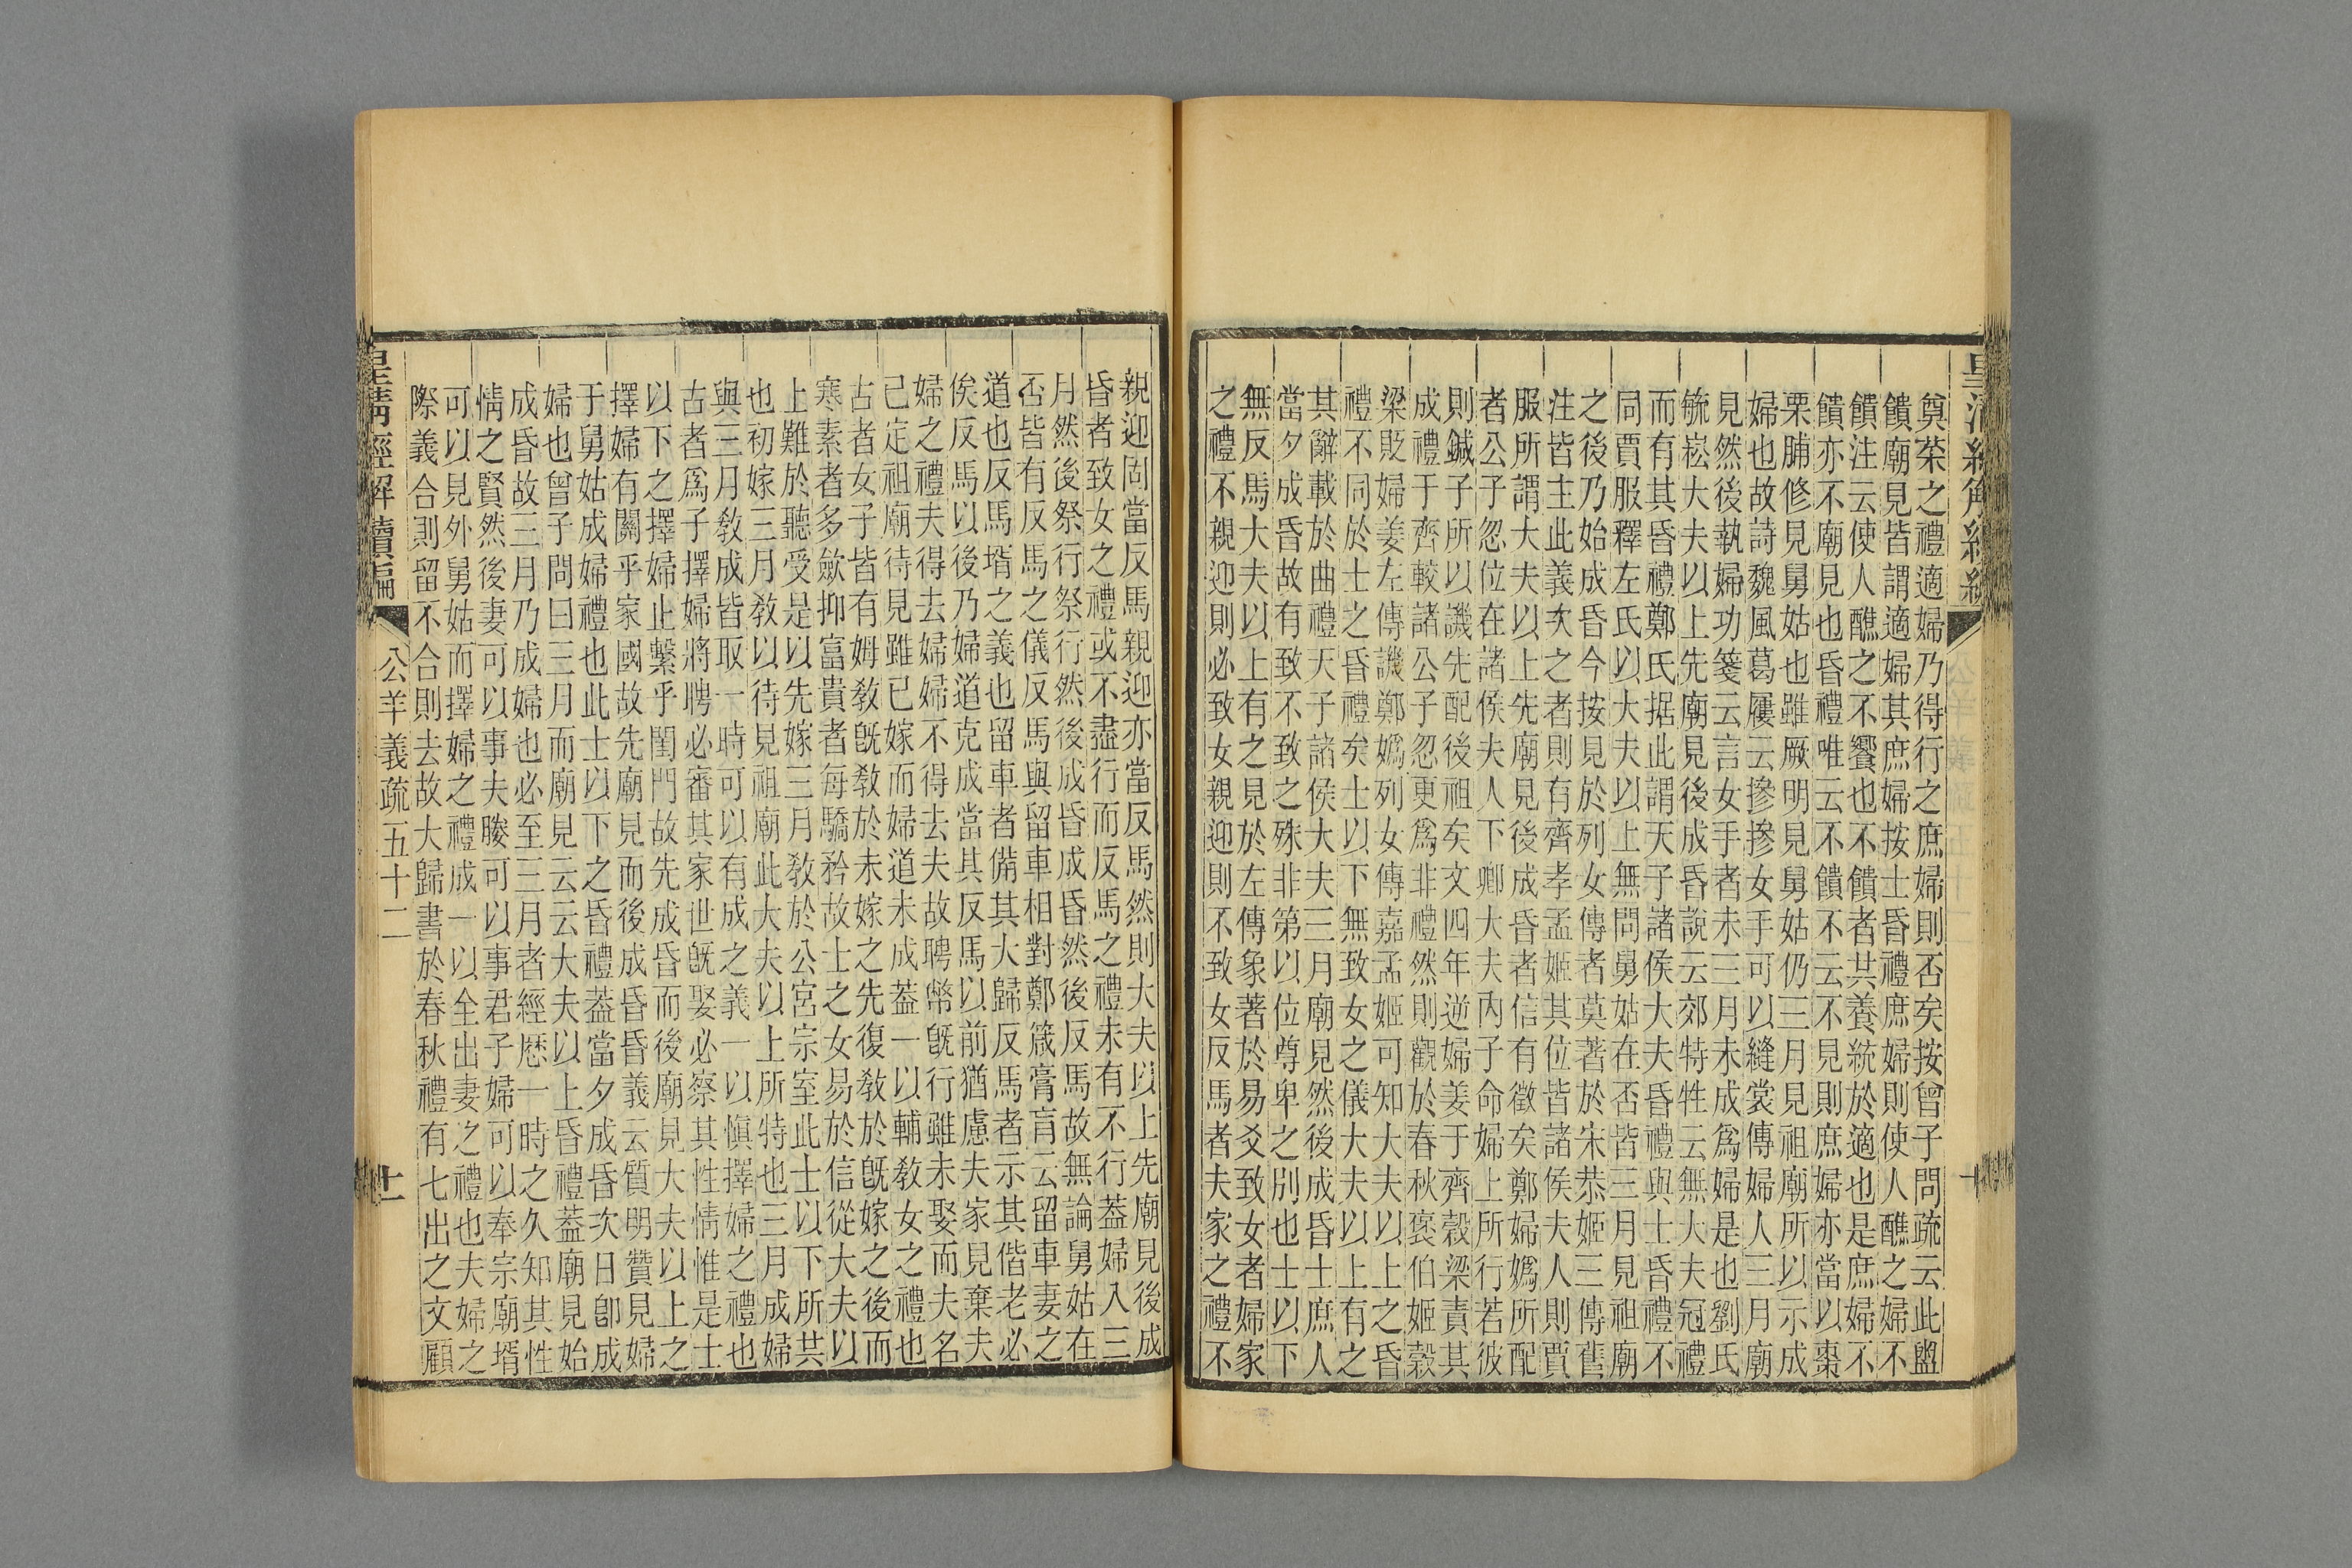 奠菜之禮適婦乃得行之庶婦則否矣按曾子問疏云此盥
饋廟見皆謂適婦其庶婦按士昏禮庶婦則使人醮之婦不
饋注云使人醮之不饗也不饋者共養統於適也是庶婦不
饋亦不廟見也昏禮唯云不饋不云不見則庶婦亦當以棗
栗腶修見舅姑也雖厥明見舅姑仍三月見祖廟所以示成
婦也故詩魏風葛屨云摻摻女手可以縫裳傳婦人三月廟
見然後執婦功箋云言女手者未三月未成爲婦是也劉氏
毓崧大夫以上先廟見後成昏說云郊特牲云無大夫冠禮
而有其昏禮鄭氏据此謂天子諸侯大夫昏禮與士昏禮不
同賈服釋左氏以大夫以上無問舅姑在否皆三月見祖廟
之後乃始成昏今按見於列女傳者莫著於宋恭姬三傳舊
注皆主此義次之者則有齊孝孟姬其位皆諸侯夫人則賈
服所謂大夫以上先廟見後成昏者信有徵矣鄭婦嬀所配
者公子忽位在諸侯夫人下卿大夫內子命婦上所行若彼
則鍼子所以譏先配後祖矣文四年逆婦姜于齊穀梁責其
成禮于齊較諸公子忽更爲非禮然則觀於春秋褒伯姬穀
梁貶婦姜左傳譏鄭嬀列女傳嘉孟姬可知大夫以上之昏
禮不同於士之昏禮矣士以下無致女之儀大夫以上有之
其辭載於曲禮天子諸侯大夫三月廟見然後成昏士庶人
當夕成昏故有致不致之殊非第以位尊卑之別也士以下
無反馬大夫以上有之見於左傳象著於易爻致女者婦家
之禮不親迎則必致女親迎則不致女反馬者夫家之禮不
親迎固當反馬親迎亦當反馬然則大夫以上先廟見後成
昏者致女之禮或不盡行而反馬之禮未有不行蓋婦入三
月然後祭行祭行然後成昏成昏然後反馬故無論舅姑在
否皆有反馬之儀反馬與留車相對鄭箴膏肓云留車妻之
道也反馬壻之義也留車者備其大歸反馬者示其偕老必
俟反馬以後乃婦道克成當其反馬以前猶慮夫家見棄夫
婦之禮夫得去婦婦不得去夫故聘幣旣行雖未娶而夫名
已定祖廟待見雖已嫁而婦道未成蓋一以輔敎女之禮也
古者女子皆有姆敎旣敎於未嫁之先復敎於旣嫁之後而
寒素者多斂抑富貴者每驕矜故士之女易於信從大夫以
上難於聽受是以先嫁三月敎於公宮宗室此士以下所共
也初嫁三月敎以待見祖廟此大夫以上所特也三月成婦
與三月敎成皆取一時可以有成之義一以愼擇婦之禮也
古者爲子擇婦將聘必審其家世旣娶必察其性情惟是士
以下之擇婦止繫乎閨門故先成昏而後廟見大夫以上之
擇婦有關乎家國故先廟見而後成昏昏義云質明贊見婦
于舅姑成婦禮也此士以下之昏禮蓋當夕成昏次日卽成
婦也曾子問曰三月而廟見云云大夫以上昏禮蓋廟見始
成昏故三月乃成婦也必至三月者經歷一時之久知其性
情之賢然後妻可以事夫媵可以事君子婦可以奉宗廟壻
可以見外舅姑而擇婦之禮成一以全出妻之禮也夫婦之
際義合則留不合則去故大歸書於春秋禮有七出之文顧
皇清經解續編
公羊義疏五十二
十一